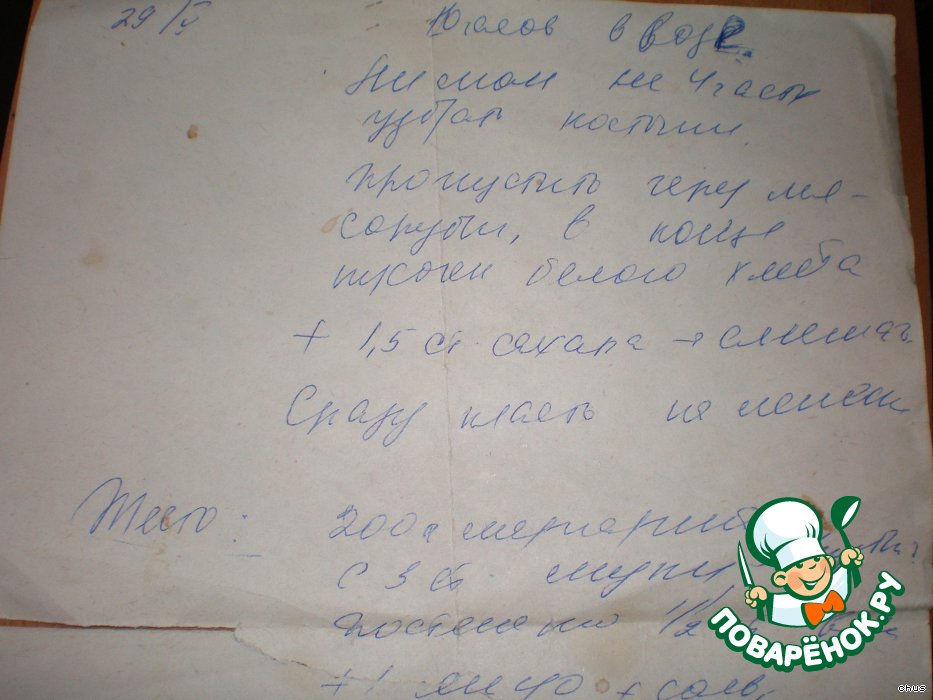 29/V
10 часов в воде.
Лимон на 4 части
убрать косточки
пропустить через мя-
сорубку, в конце
кусочек белого хлеба
+ 1,5 ст. сахара → смешать
Сразу класть на
Тесто: 200 г маргарина
с 3 ст. муки
постепенно 1/2
+ 1 яйцо + соль
ПОВАРЁНОК.РУ
chus